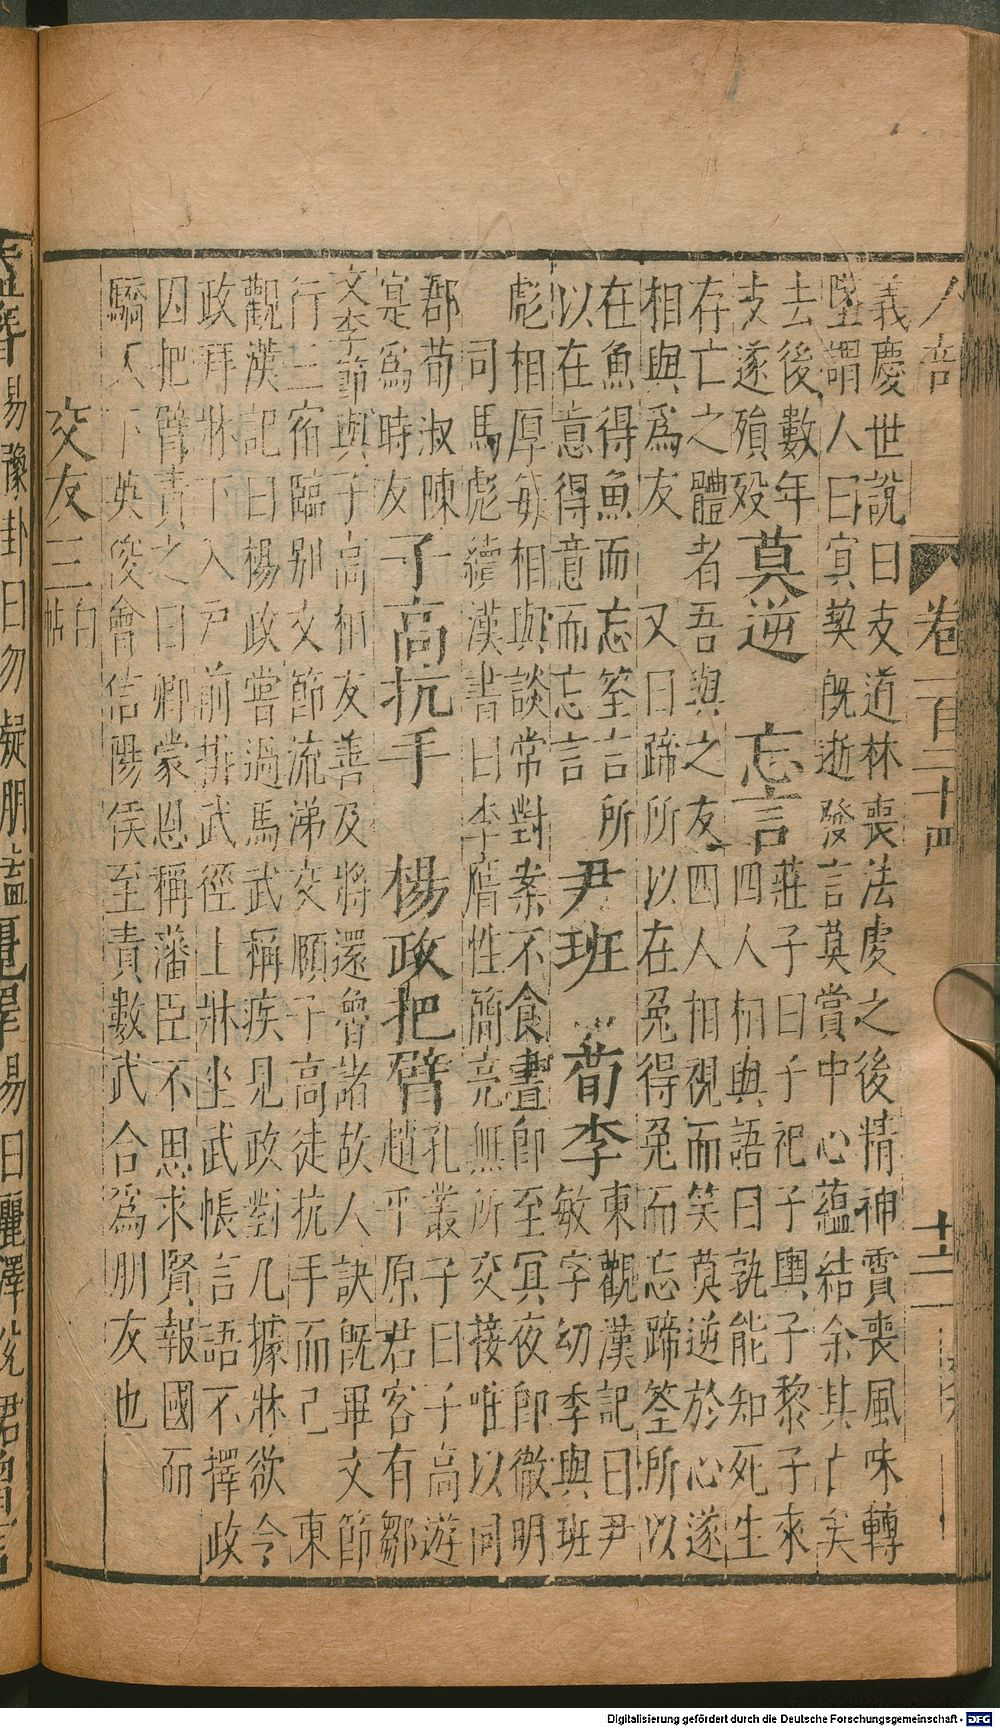 人部
卷一百三十四
十二
義慶世說曰支道林喪法虔之後精神霣喪風味轉
墜謂人曰冥契既逝發言莫賞中心蘊結余其亡矣
去後數年
支遂殞歿
莫逆
忘言
莊子曰子祀子輿子黎子來
四人相與語曰孰能知死生
存亡之體者吾與之友四人相視而笑莫逆於心遂
相與爲友
又曰蹄所以在兔得兔而忘蹄筌所以
在魚得魚而忘筌言所
以在意得意而忘言
尹班
荀李
東觀漢記曰尹
敏字幼季與班
彪相厚每相與談常對案不食晝即至冥夜即徹明
司馬彪續漢書曰李膺性簡亮無所交接唯以同
郡荀淑陳
寔爲時友
子高抗手
楊政把臂
孔叢子曰子高遊
趙平原君客有鄒
文李節與子高相友善及將還魯諸故人訣既畢文節
行三宿臨别文節流涕交頤子高徒抗手而已
東
觀漢記曰楊政嘗過馬武稱疾見政對几據牀欲令
政拜牀下入戶前排武徑上牀坐武帳言語不擇
政
因把臂責之曰卿蒙恩稱藩臣不思求賢報國而
驕天下英俊會信陽侯至責數武合爲朋友也
交友三
白
帖
易豫卦曰勿疑朋盍簪
麗澤
易曰麗澤兌君
Digitalisierung gefördert durch die Deutsche Forschungsgemeinschaft - DFG